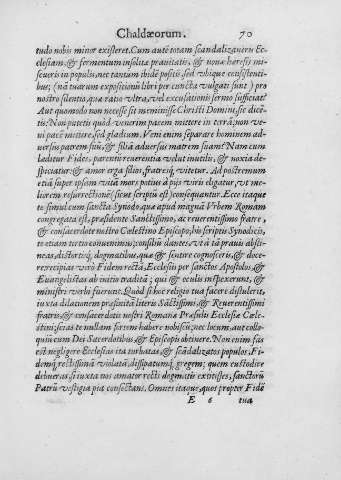 Chaldæorum. 70
tudo nobis minor existeret. Cum autẽ totam scandalizaueris Ec-
clesiam, & fermentum insolitæ prauitatis, & nouæ hæresis mi-
scueris in populis, nec tantum ibidẽ positis, sed vbique existentibus;
bus; (nã tuarum expositionũ libri per cuncta vulgati sunt) pro
nostro silentio, quæ ratio vltra, vel excusationis sermo sufficiat?
Aut quomodo non necesse sit meminisse Christi Domini, sic dicẽ-
tis: Non putetis quòd venerim pacem mittere in terrã; non ve-
ni pacẽ mittere, sed gladium. Veni enim separare hominem ad-
uersus patrem suũ, & filiã aduersus matrem suam? Nam cum
læditur Fides, parentũ reuerentia velut inutilis, & noxia de-
spiciatur: & amor erga filios, fratresq; vitetur. Ad postremum
etiã super ipsam vitã mors potius à pijs viris eligatur, vt me-
liorem resurrectionẽ (sicut scriptũ est) consequantur. Ecce itaque
te simul cum sancta Synodo, quæ apud magnã Vrbem Romam
congregata est, præsidente Sanctissimo, ac reuerentissimo fratre,
& consacerdote nostro Cælestino Episcopo, his scriptis Synodicis,
te etiam tertiò conuenimus; consiliũ dantes, vt à tã prauis absti-
neas, distortisq; dogmatibus, quæ & sentire cognosceris, & doce-
re; recipias verò Fidem rectã, Ecclesijs per sanctos Apostolos, &
Euangelistas ab initio traditã; qui & oculis inspexerunt, &
ministri verbi fuerunt. Quòd si hæc religio tua facere distulerit,
iuxta dilationem præfinitã literis Sãctissimi, & Reuerentissimi
fratris, & consacerdotis nostri Romanæ Præsulis Ecclesiæ Cæle-
stini; scias te nullam sortem habere nobiscũ; nec locum, aut collo-
quiũ cum Dei Sacerdotibus, & Episcopis obtinere. Non enim fas
est negligere Ecclesias ita turbatas, & scãdalizatos populos, Fi-
demq; rectissimã violatã, dissipatumq; gregem; quem custodire
debueras, si iuxta nos amator recti dogmatis extitisses, sanctorũ
Patrũ vestigia pia consectans. Omnes itaque, quos propter Fidẽ
E 6 tua